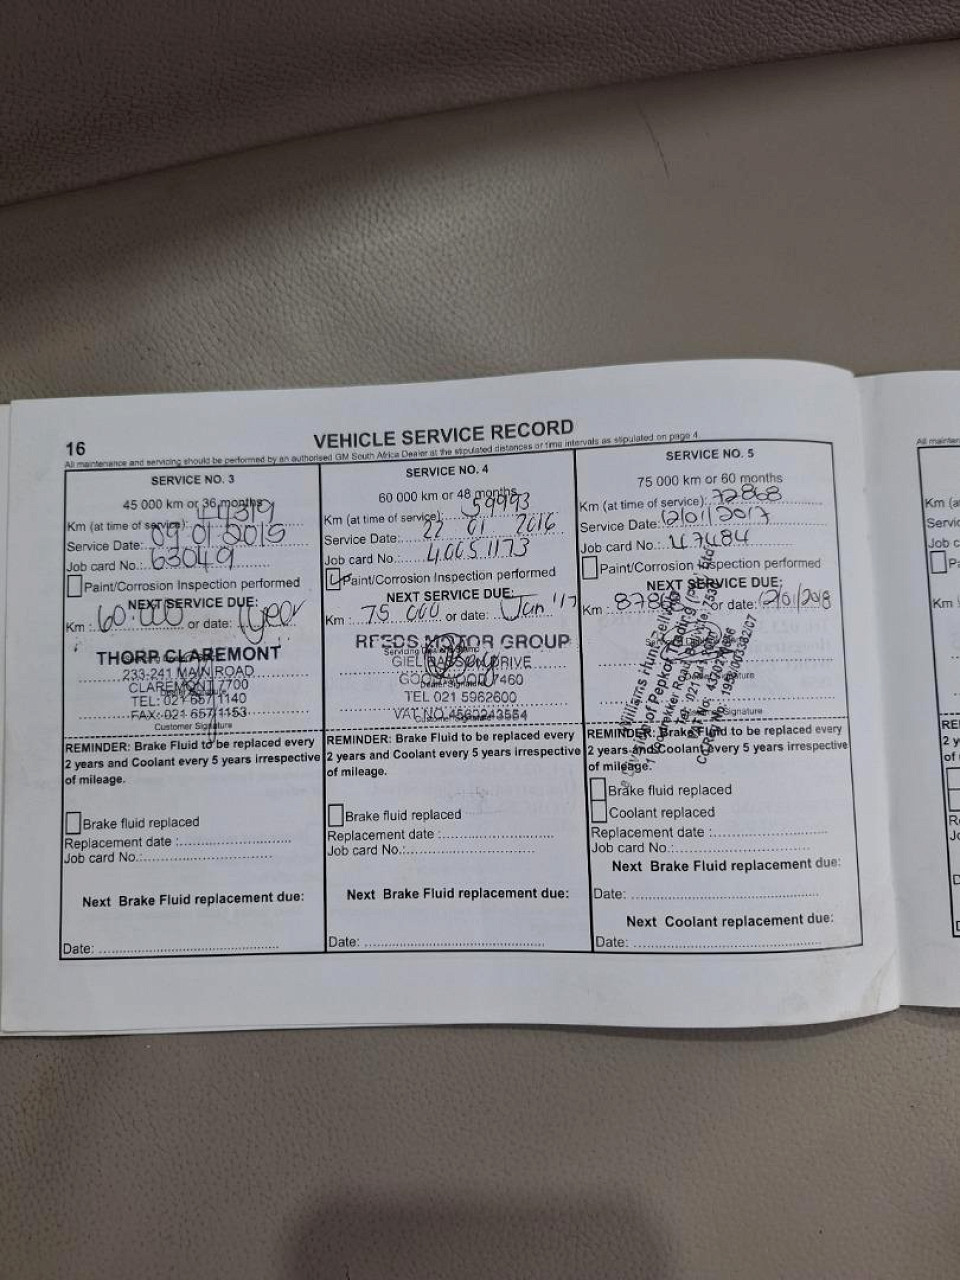 16
VEHICLE SERVICE RECORD
All maintenance and servicing should be performed by an authorised GM South Africa Dealer at the stipulated distances or time intervals as stipulated on page 4
SERVICE NO. 3
45 000 km or 36 months
Km (at time of service):
Service Date: 09 01 2015
Job card No.: 63049
Paint/Corrosion Inspection performed
NEXT SERVICE DUE:
Km : 60.000 or date: 1year
THORP CLAREMONT
233-241 MAIN ROAD
CLAREMONT 7700
TEL: 021 657 1140
FAX: 021 657 1153
Customer Signature
REMINDER: Brake Fluid to be replaced every
2 years and Coolant every 5 years irrespective
of mileage.
Brake fluid replaced
Replacement date :
Job card No.:
Next Brake Fluid replacement due:
Date:
SERVICE NO. 4
60 000 km or 48 months
Km (at time of service): 59993
Service Date: 22 01 2016
Job card No.: 40051173
Paint/Corrosion Inspection performed
NEXT SERVICE DUE:
Km : 75 000 or date: Jan '17
REEDS MOTOR GROUP
GIEL BASSON DRIVE
GOODWOOD 7460
TEL 021 5962600
VAT NO 4560243554
REMINDER: Brake Fluid to be replaced every
2 years and Coolant every 5 years irrespective
of mileage.
Brake fluid replaced
Replacement date :
Job card No.:
Next Brake Fluid replacement due:
Date:
SERVICE NO. 5
75 000 km or 60 months
Km (at time of service): 72868
Service Date: 12/01/2017
Job card No.: 47484
Paint/Corrosion Inspection performed
NEXT SERVICE DUE:
Km : or date: 12/01/2018
Williams Hunt
of Pepkor Trading (Pty) Ltd
Signature
REMINDER: Brake Fluid to be replaced
2 years and Coolant every 5 years irrespective
of mileage.
Brake fluid replaced
Coolant replaced
Replacement date :
Job card No.:
Next Brake Fluid replacement due:
Date:
Next Coolant replacement due:
Date: